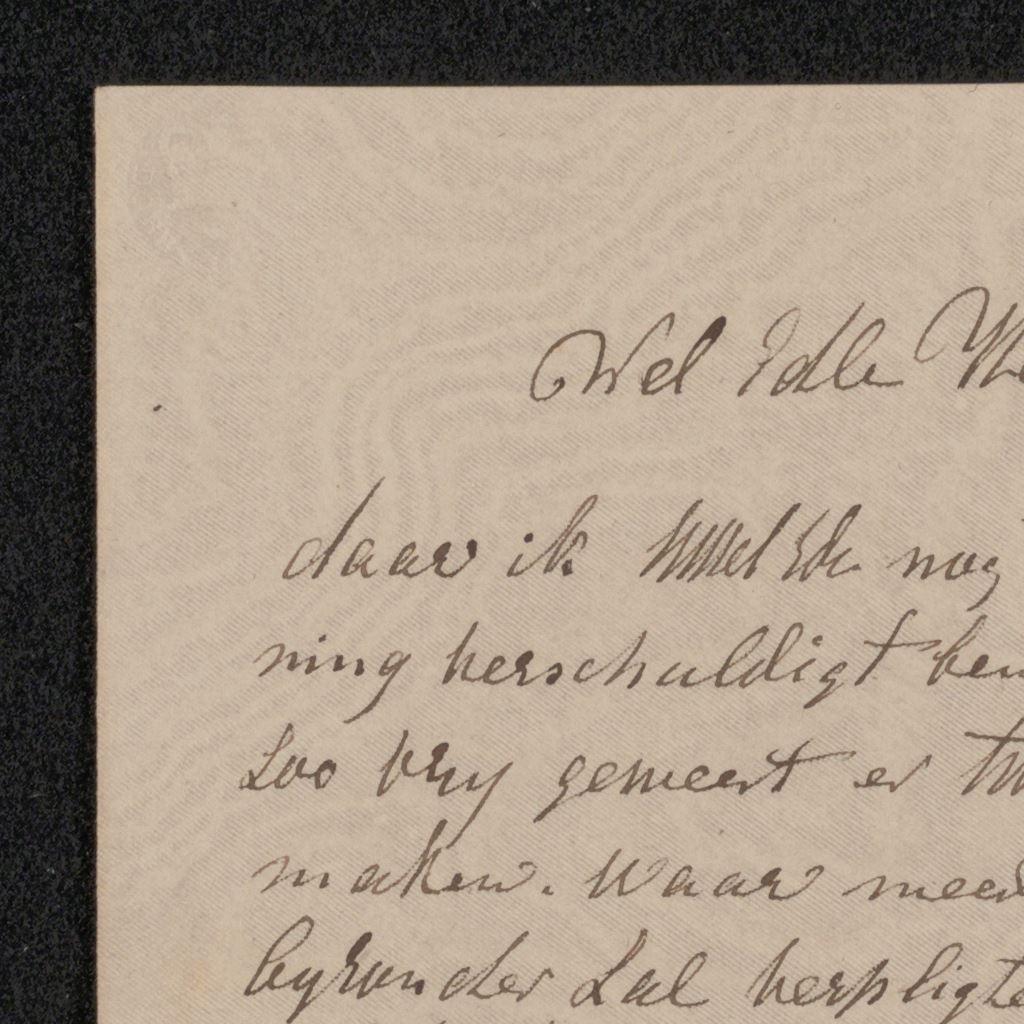 Wel Edle
daar ik UWEd nog
ning verschuldigt ben
Zoo vry geweest er
maken. Waar meed
byzonder Zal verpligte